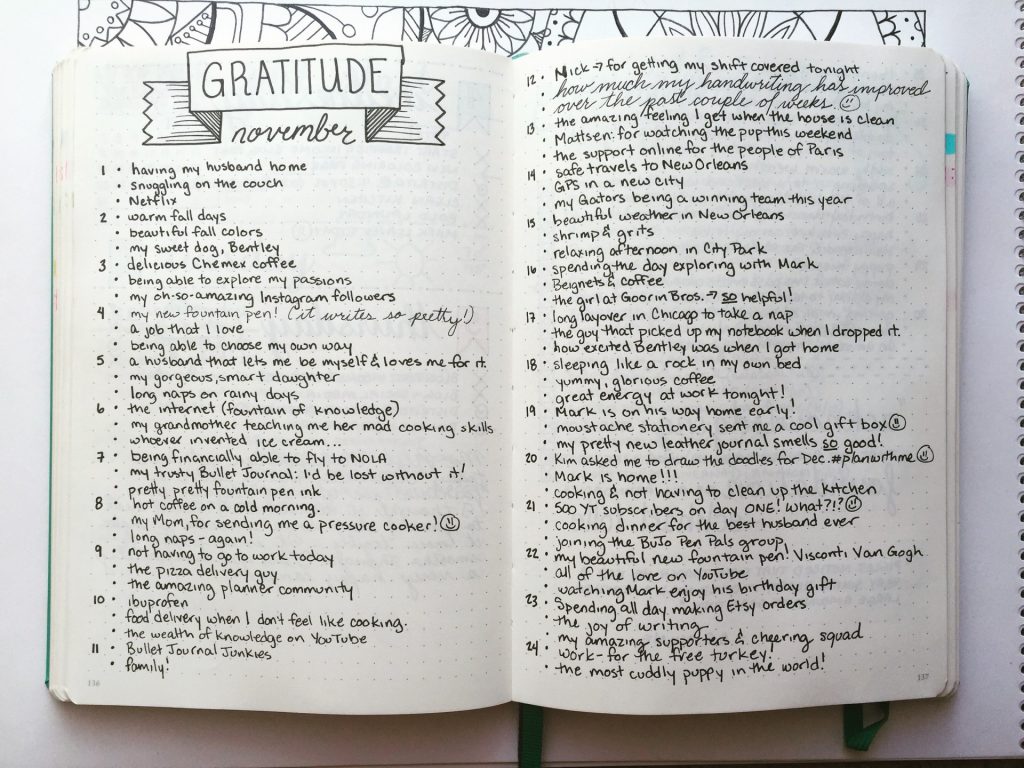 GRATITUDE
november
1 • having my husband home
• snuggling on the couch
• Netflix
2 • warm fall days
• beautiful fall colors
• my sweet dog, Bentley
3 • delicious Chemex coffee
• being able to explore my passions
• my oh-so-amazing Instagram followers
4 • my new fountain pen! (it writes so pretty!)
• a job that I love
• being able to choose my own way
5 • a husband that lets me be myself & loves me for it.
• my gorgeous, smart daughter
• long naps on rainy days
6 • the internet (fountain of knowledge)
• my grandmother teaching me her mad cooking skills
• whoever invented ice cream...
7 • being financially able to fly to NOLA
• my trusty Bullet Journal: I'd be lost without it!
• pretty pretty fountain pen ink
8 • hot coffee on a cold morning.
• my Mom, for sending me a pressure cooker!
• long naps - again!
9 • not having to go to work today
• the pizza delivery guy
• the amazing planner community
10 • ibuprofen
• food delivery when I don't feel like cooking.
• the wealth of knowledge on YouTube
11 • Bullet Journal Junkies
• family!
136
12 • Nick → for getting my shift covered tonight
• how much my handwriting has improved
over the past couple of weeks.
13 • the amazing feeling I get when the house is clean
• Mattsen: for watching the pup this weekend
• the support online for the people of Paris
14 • safe travels to New Orleans
• GPS in a new city
• my Gators being a winning team this year
15 • beautiful weather in New Orleans
• shrimp & grits
• relaxing afternoon in City Park
16 • spending the day exploring with Mark
• Beignets & coffee
• the girl at Goorin Bros. → so helpful!
17 • long layover in Chicago to take a nap
• the guy that picked up my notebook when I dropped it.
• how excited Bentley was when I got home
18 • sleeping like a rock in my own bed
• yummy, glorious coffee
• great energy at work tonight!
19 • Mark is on his way home early!
• moustache stationery sent me a cool gift box
• my pretty new leather journal smells so good!
20 • Kim asked me to draw the doodles for Dec. #planwithme
• Mark is home!!!
• cooking & not having to clean up the kitchen
21 • 500 YT subscribers on day ONE! What?!?
• cooking dinner for the best husband ever
• joining the BuJo Pen Pals group
22 • my beautiful new fountain pen! Visconti Van Gogh
• all of the love on YouTube
• watching Mark enjoy his birthday gift
23 • Spending all day making Etsy orders
• the joy of writing
• my amazing supporters & cheering squad
24 • work - for the free turkey!
• the most cuddly puppy in the world!
137